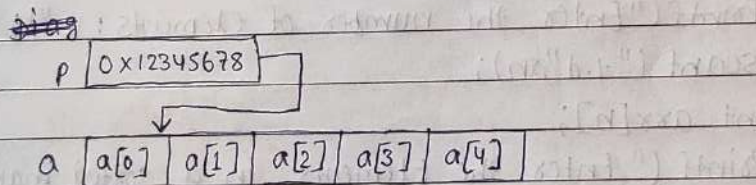 p 0x12345678
a a[0] a[1] a[2] a[3] a[4]